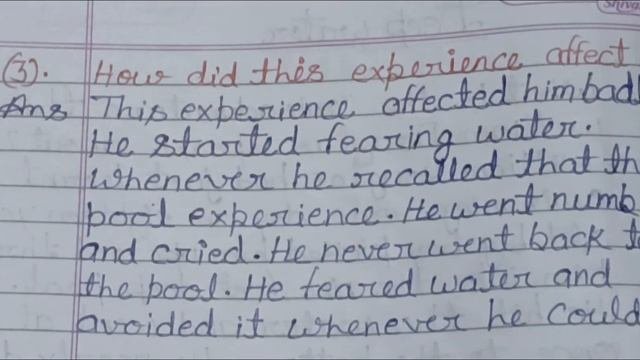 (3). How did this experience affect
Ans This experience affected him bad
He started fearing water.
Whenever he recalled that th
pool experience. He went numb
and cried. He never went back t
the pool. He feared water and
avoided it whenever he could